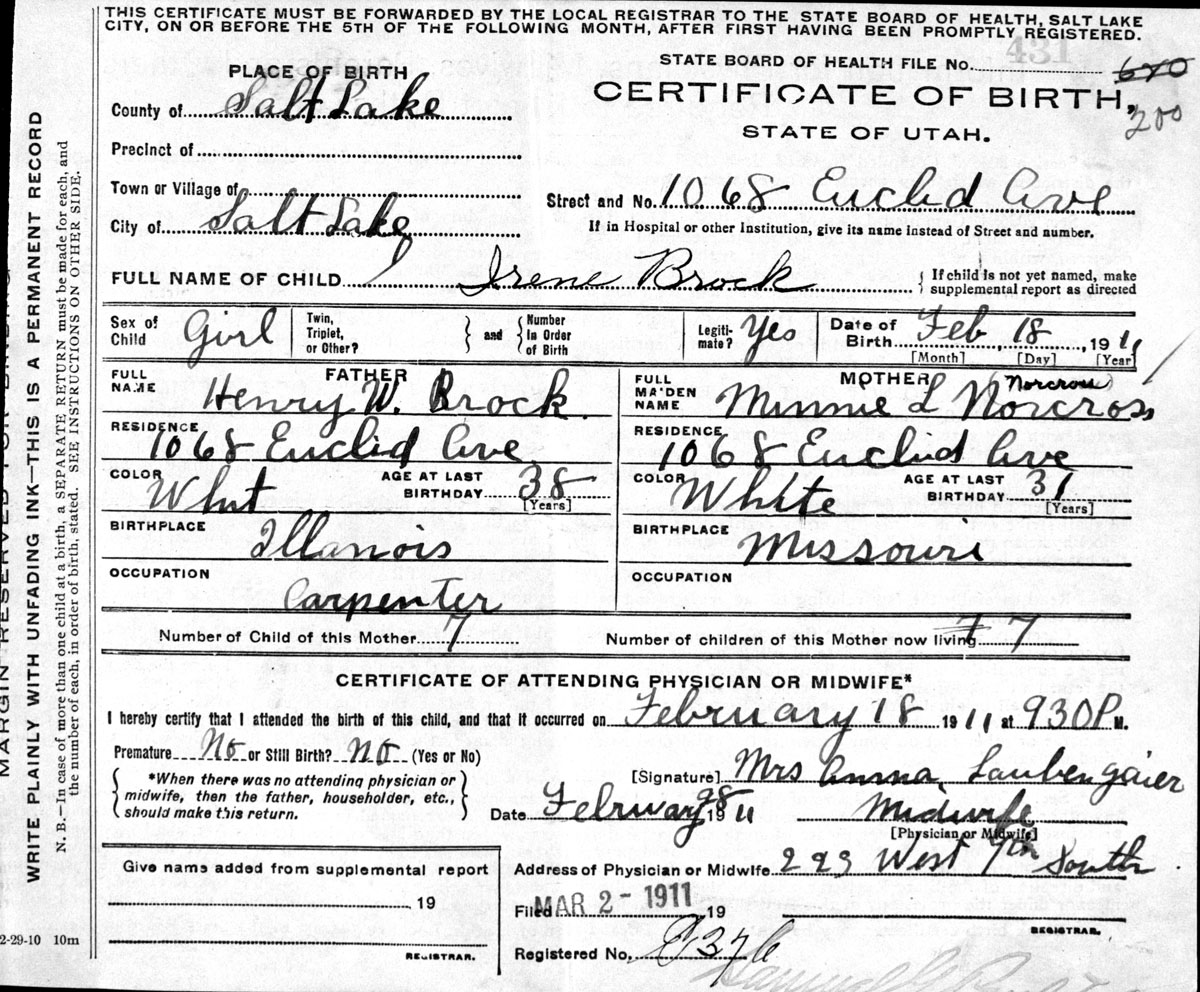 THIS CERTIFICATE MUST BE FORWARDED BY THE LOCAL REGISTRAR TO THE STATE BOARD OF HEALTH, SALT LAKE
CITY, ON OR BEFORE THE 5TH OF THE FOLLOWING MONTH, AFTER FIRST HAVING BEEN PROMPTLY REGISTERED.
431
STATE BOARD OF HEALTH FILE No. 670
200
PLACE OF BIRTH
CERTIFICATE OF BIRTH,
STATE OF UTAH.
County of Salt Lake
Precinct of
Town or Village of
Street and No. 1068 Euclid Ave
City of Salt Lake
If in Hospital or other Institution, give its name instead of Street and number.
FULL NAME OF CHILD Irene Brock
If child is not yet named, make
supplemental report as directed
Sex of Child Girl
Twin, Triplet, or Other?
and
Number In Order of Birth
Legiti-mate? Yes
Date of Birth Feb 18 1911
[Month] [Day] [Year]
FATHER
FULL NAME Henry W. Brock.
RESIDENCE 1068 Euclid Ave
COLOR Whit
AGE AT LAST BIRTHDAY 38
[Years]
BIRTHPLACE Illanois
OCCUPATION Carpenter
MOTHER
FULL MAIDEN NAME Minnie L Norcross
(Norcross)
RESIDENCE 1068 Euclid Ave
COLOR White
AGE AT LAST BIRTHDAY 31
[Years]
BIRTHPLACE Missouri
OCCUPATION
Number of Child of this Mother 7
Number of children of this Mother now living 7 7
CERTIFICATE OF ATTENDING PHYSICIAN OR MIDWIFE*
I hereby certify that I attended the birth of this child, and that it occurred on February 18 1911 at 930P M.
Premature No or Still Birth? No (Yes or No)
*When there was no attending physician or
midwife, then the father, householder, etc.,
should make this return.
[Signature] Mrs Anna Laubengaier
Date Februray 28 1911
Midwife
[Physician or Midwife]
Address of Physician or Midwife 223 West 7th South
Give name added from supplemental report
19
REGISTRAR.
Filed MAR 2 - 1911 19
REGISTRAR.
Registered No. 376
MARGIN RESERVED FOR BINDING
WRITE PLAINLY WITH UNFADING INK—THIS IS A PERMANENT RECORD
N. B.—In case of more than one child at a birth, a SEPARATE RETURN must be made for each, and
the number of each, in order of birth, stated. SEE INSTRUCTIONS ON OTHER SIDE.
2-29-10 10m